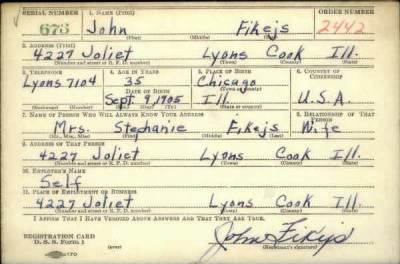 SERIAL NUMBER 1. NAME (Print) ORDER NUMBER
673 John Fikejs 2442
(First) (Middle) (Last)
2. ADDRESS (Print)
4227 Joliet Lyons Cook Ill.
(Number and street or R. F. D. number) (Town) (County) (State)
3. TELEPHONE 4. AGE IN YEARS 5. PLACE OF BIRTH 6. COUNTRY OF CITIZENSHIP
Lyons 7104 35 Chicago
DATE OF BIRTH (Town or county)
Sept 9 1905 Ill U.S.A.
(Exchange) (Number) (Mo.) (Day) (Yr.) (State or country)
7. NAME OF PERSON WHO WILL ALWAYS KNOW YOUR ADDRESS 8. RELATIONSHIP OF THAT PERSON
Mrs. Stephanie Fikejs Wife
(Mr., Mrs., Miss) (First) (Middle) (Last)
9. ADDRESS OF THAT PERSON
4227 Joliet Lyons Cook Ill.
(Number and street or R. F. D. number) (Town) (County) (State)
10. EMPLOYER'S NAME
Self
11. PLACE OF EMPLOYMENT OR BUSINESS
4227 Joliet Lyons Cook Ill.
(Number and street or R. F. D. number) (Town) (County) (State)
I AFFIRM THAT I HAVE VERIFIED ABOVE ANSWERS AND THAT THEY ARE TRUE.
REGISTRATION CARD
D. S. S. Form 1 (over) John Fikejs
(Registrant's signature)